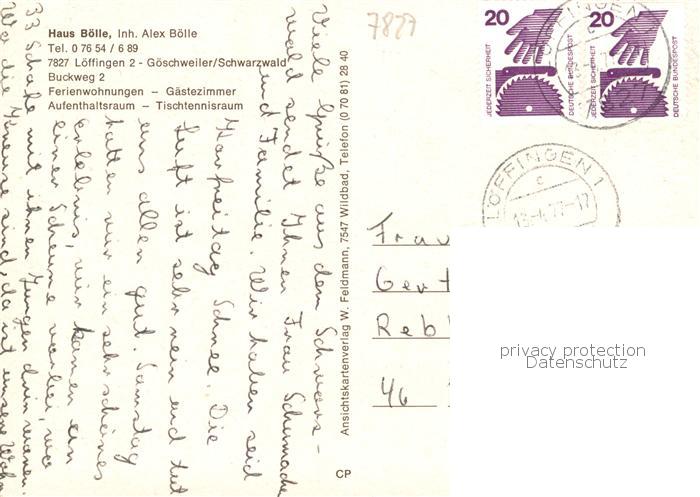 Haus Bölle, Inh. Alex Bölle
Tel. 0 76 54 / 6 89
7827 Löffingen 2 - Göschweiler/Schwarzwald
Buckweg 2
Ferienwohnungen – Gästezimmer
Aufenthaltsraum – Tischtennisraum
Viele Grüße aus dem Schwarz-
wald sendet Ihnen Frau Schumacher
und Familie. Wir haben seid
Karfreitag Schnee. Die
Luft ist sehr rein und tut
uns allen gut. Samstag
hatten wir ein sehr schönes
Erlebnis, wir kamen an
einer Scheune vorbei, wo
33 Schafe mit ihnen Jungen drin waren.
Wo die Kreuse sind, da ist unsere Wohn
Ansichtskartenverlag W. Feldmann, 7547 Wildbad, Telefon (0 70 81) 28 40
CP
7827
20
JEDERZEIT SICHERHEIT
DEUTSCHE BUNDESPOST
20
JEDERZEIT SICHERHEIT
DEUTSCHE BUNDESPOST
LÖFFINGEN 1
c
Frau
Gert
Reb
46
privacy protection
Datenschutz